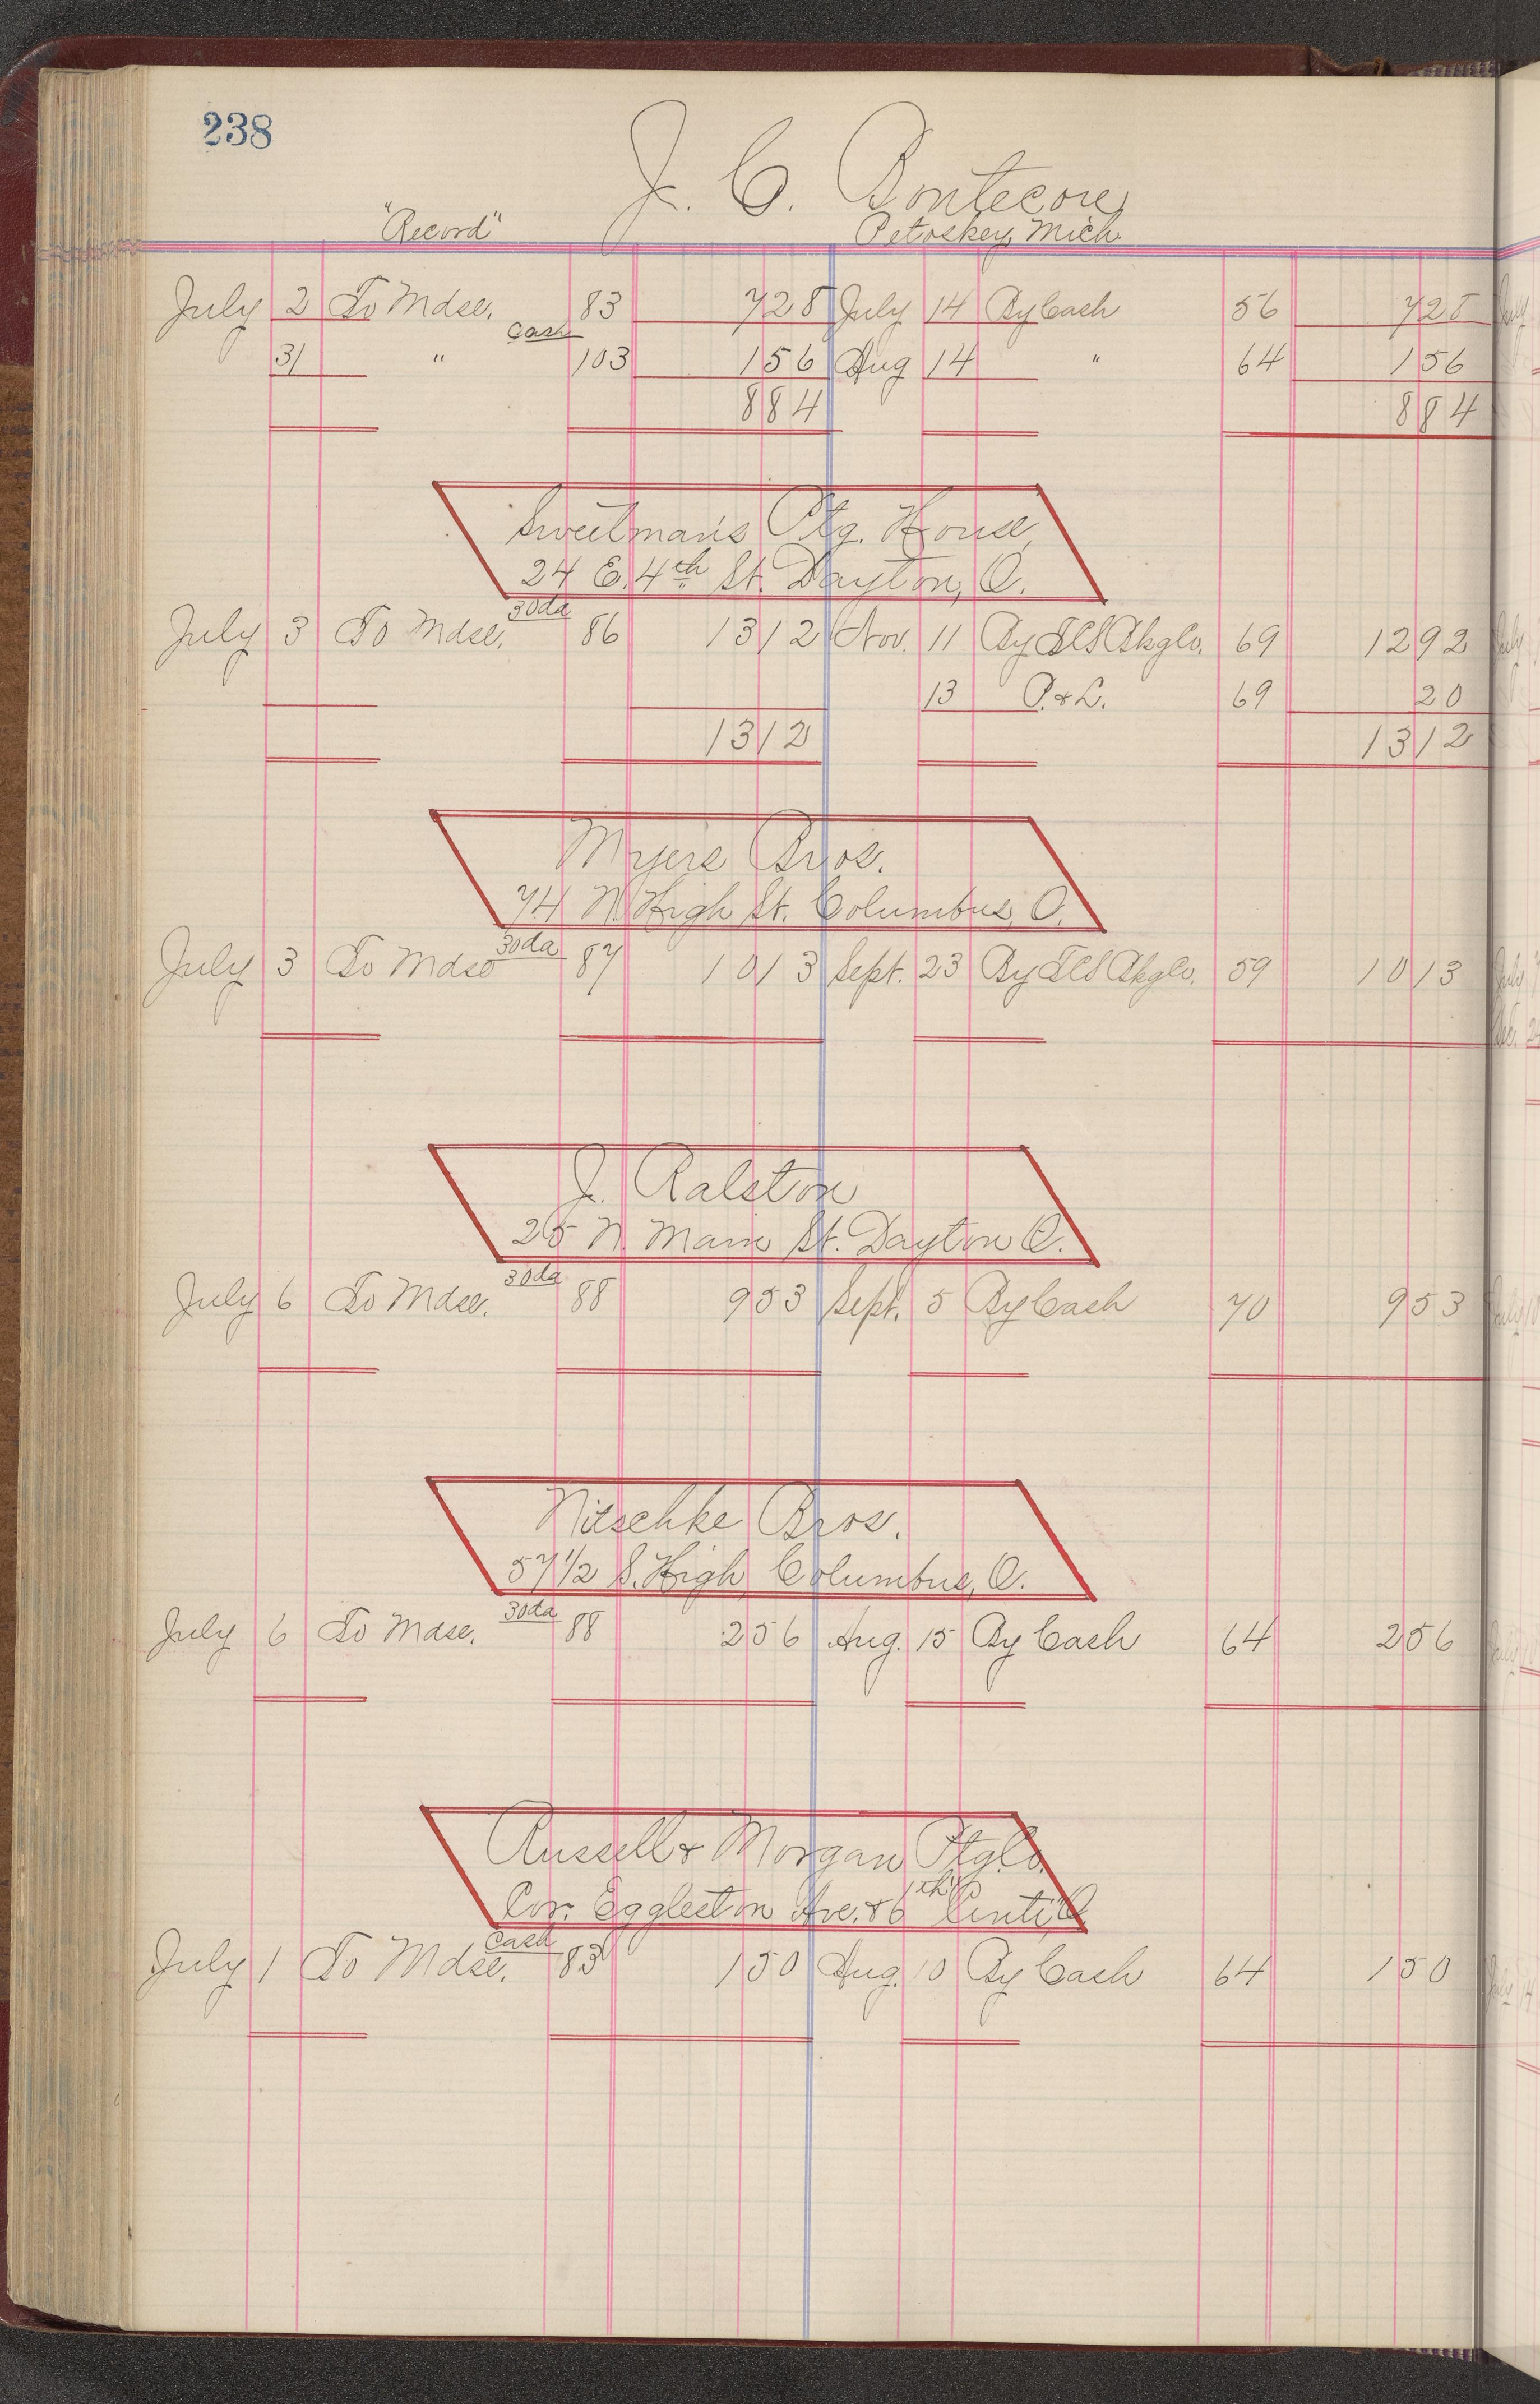 238
J. C. Bontecore,
"Record" Petoskey, Mich.
July 2 To Mdse. Cash 83 728 July 14 By Cash 56 728
31 " 103 156 Aug 14 " 64 156
884 884
Sweetman's Ptg. House,
24 E. 4th St. Dayton, O.
July 3 To Mdse. 30da 86 1312 Nov. 11 By 69 1292
13 P. & L. 69 20
1312 1312
Myers Bros.
74 N. High St. Columbus, O.
July 3 To Mdse 30da 87 1013 Sept. 23 By 59 1013
J. Ralston
25 N. Main St. Dayton O.
July 6 To Mdse. 30da 88 953 Sept. 5 By Cash 70 953
Nitschke Bros.
57 1/2 S. High, Columbus, O.
July 6 To Mdse. 30da 88 256 Aug. 15 By Cash 64 256
Russell & Morgan Ptg. Co.
Cor. Eggleston Ave. & 6th Cinti, O.
July 1 To Mdse. Cash 83 150 Aug. 10 By Cash 64 150